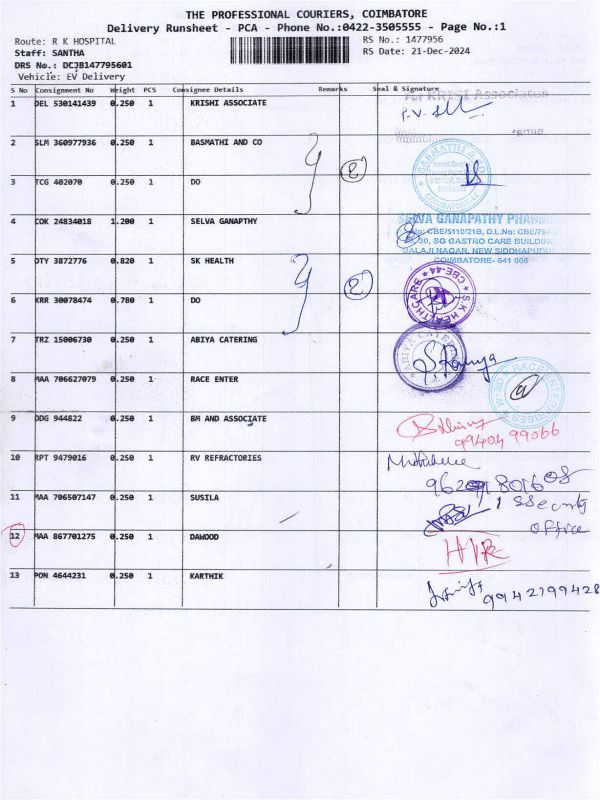 THE PROFESSIONAL COURIERS, COIMBATORE
Delivery Runsheet - PCA - Phone No.:0422-3505555 - Page No.:1
Route: R K HOSPITAL
RS No.: 1477956
Staff: SANTHA
RS Date: 21-Dec-2024
DRS No.: DCJB147795601
Vehicle: EV Delivery
S No Consignment No Weight PCS Consignee Details Remarks Seal & Signature
1 DEL 530141439 0.250 1 KRISHI ASSOCIATE
For KRISHI Associates
2 SLM 360977936 0.250 1 BASMATHI AND CO
2
BASMATHI & CO
3 TCG 402070 0.250 1 DO
4 COK 24834018 1.200 1 SELVA GANAPTHY
SELVA GANAPATHY PHARM
No: CBE/5110/21B, D.L.No: CBE/
30, SG GASTRO CARE BUILDING
BALAJI NAGAR, NEW SIDDHAPUDUR
COIMBATORE- 641 006
5 OTY 3872776 0.820 1 SK HEALTH
2
S.K HEALTHCARE ★ CBE-44 ★
6 KRR 30078474 0.780 1 DO
7 TRZ 15006730 0.250 1 ABIYA CATERING
ABIYA CATER
8 MAA 706627079 0.250 1 RACE ENTER
RACE ENTERPRISES
9 DDG 944822 0.250 1 BM AND ASSOCIATE
99404 99066
10 RPT 9479016 0.250 1 RV REFRACTORIES
11 MAA 706507147 0.250 1 SUSILA
Security
office
12 MAA 867701275 0.250 1 DAWOOD
13 PON 4644231 0.250 1 KARTHIK
9942199428